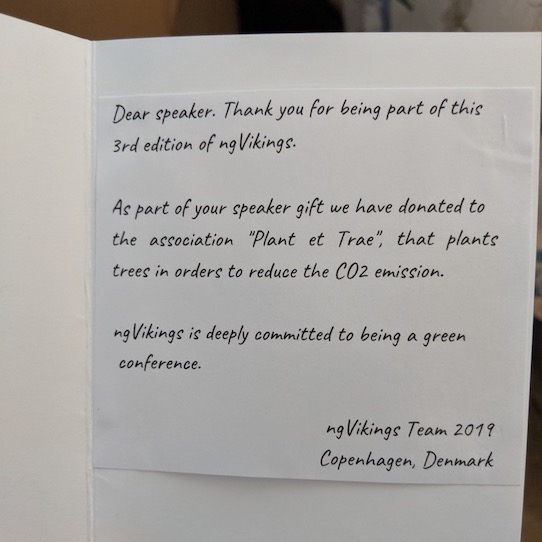 Dear speaker. Thank you for being part of this
3rd edition of ngVikings.
As part of your speaker gift we have donated to
the association "Plant et Trae", that plants
trees in orders to reduce the CO2 emission.
ngVikings is deeply committed to being a green
conference.
ngVikings Team 2019
Copenhagen, Denmark